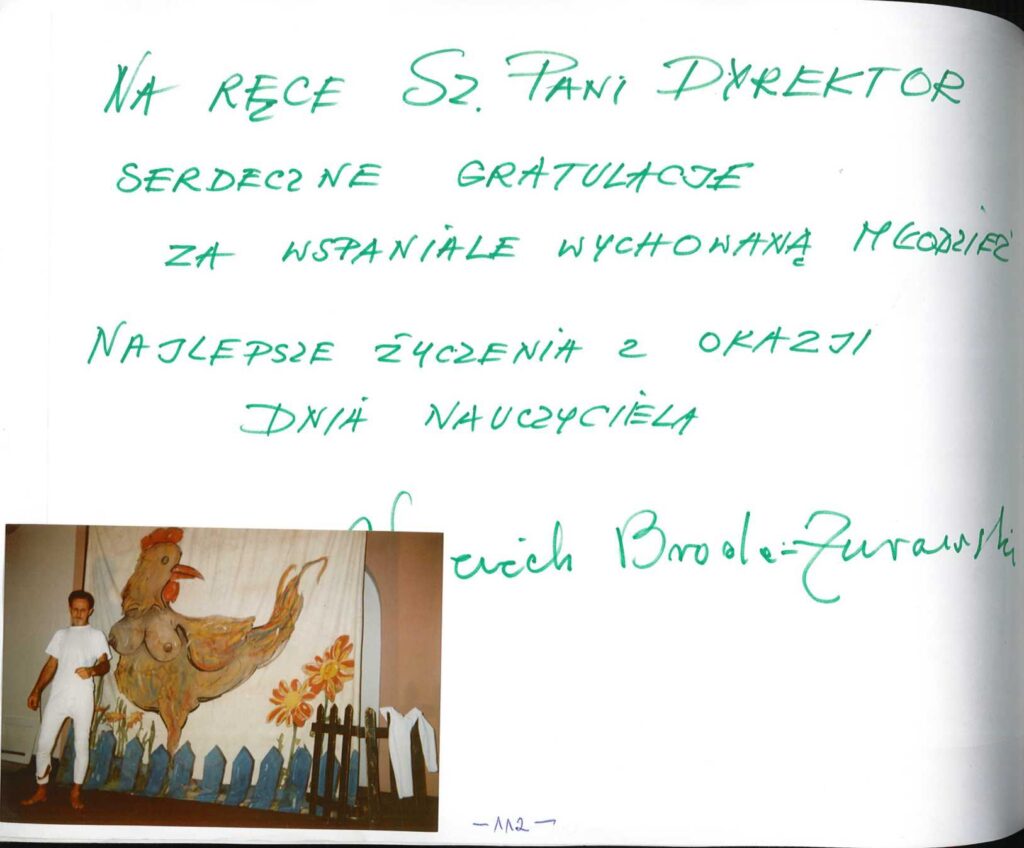 NA RĘCE SZ. PANI DYREKTOR
SERDECZNE GRATULACJE
ZA WSPANIALE WYCHOWANĄ MŁODZIEŻ
NAJLEPSZE ŻYCZENIA Z OKAZJI
DNIA NAUCZYCIELA
Broda-Żurawski
-112-